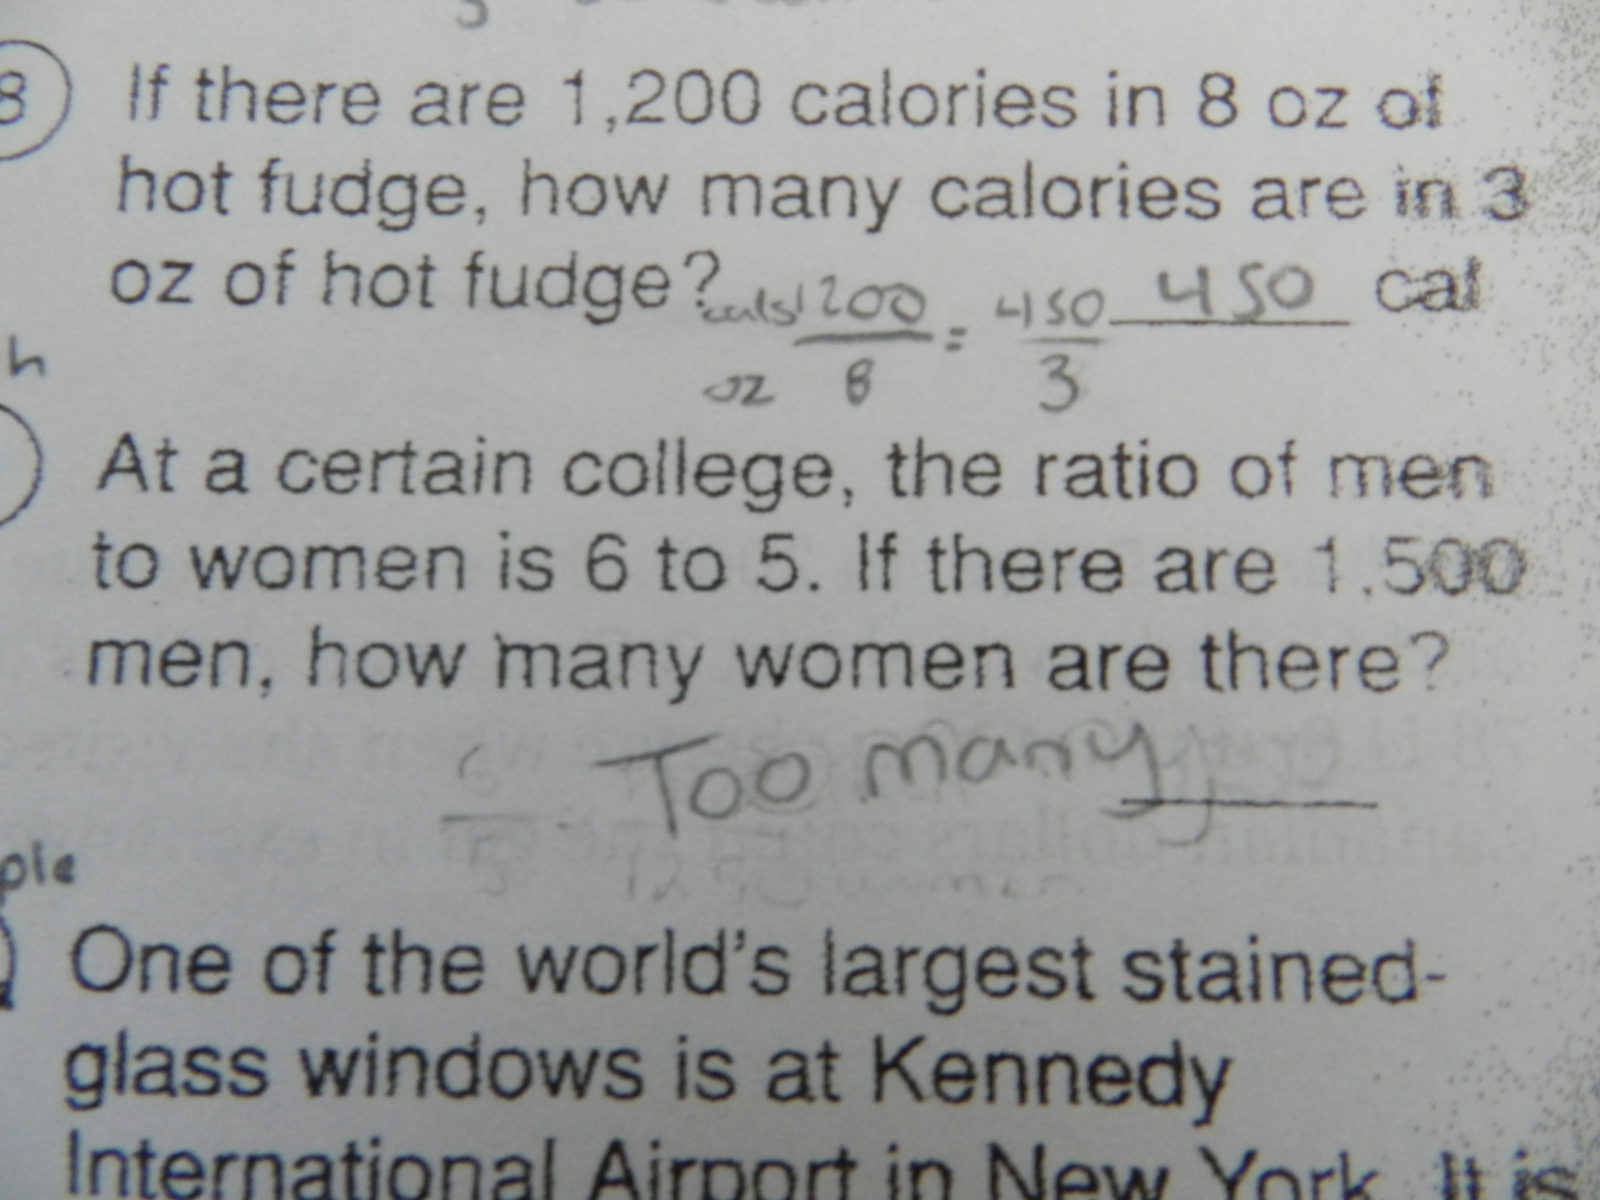 8 If there are 1,200 calories in 8 oz of
hot fudge, how many calories are in 3
oz of hot fudge? 450 cal
cals 1200 = 450
oz 8 3
h
At a certain college, the ratio of men
to women is 6 to 5. If there are 1,500
men, how many women are there?
Too many
6
5 1250 women
ple
One of the world's largest stained-
glass windows is at Kennedy
International Airport in New York. It is